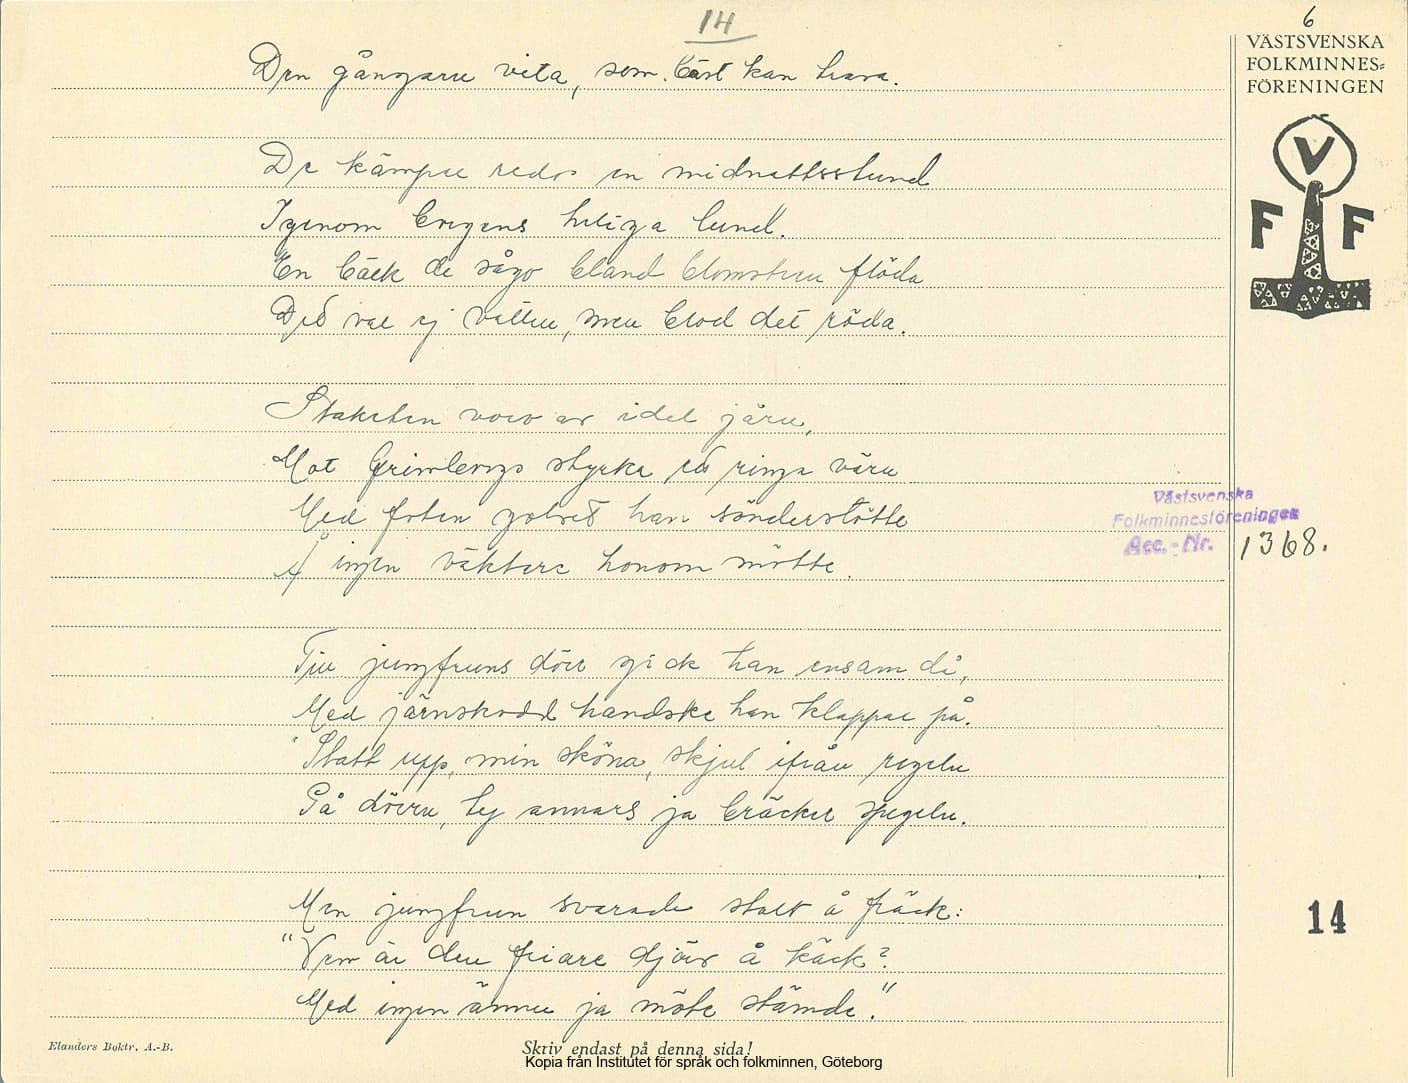 14
6
VÄSTSVENSKA
FOLKMINNES=
FÖRENINGEN
V
F F
Den gångaren vita, som bäst kan trava.
De kämpar redos en midnattsstund
Igenom borgens heliga lund.
En bäck de sågo bland blomstren flöda
Det var ej vatten, men blod det röda.
Staketen voro av idel järn,
Mot Grimborgs styrka ett ringa värn
Med foten galret han sönderstötte
Å ingen väktare honom mötte.
Till jungfruns dörr gick han ensam då,
Med järnskodd handske han klappar på.
"Statt upp, min sköna, skjut ifrån regeln
På dörren, ty annars ja bräcker spegeln.
Men jungfrun svarade stolt å fräck:
"Vem är den friare djärv å käck?
Med ingen ännu ja möte stämde."
Västsvenska
Folkminnesföreningen
Acc.-Nr. 1368.
14
Elanders Boktr. A.-B.
Skriv endast på denna sida!
Kopia från Institutet för språk och folkminnen, Göteborg